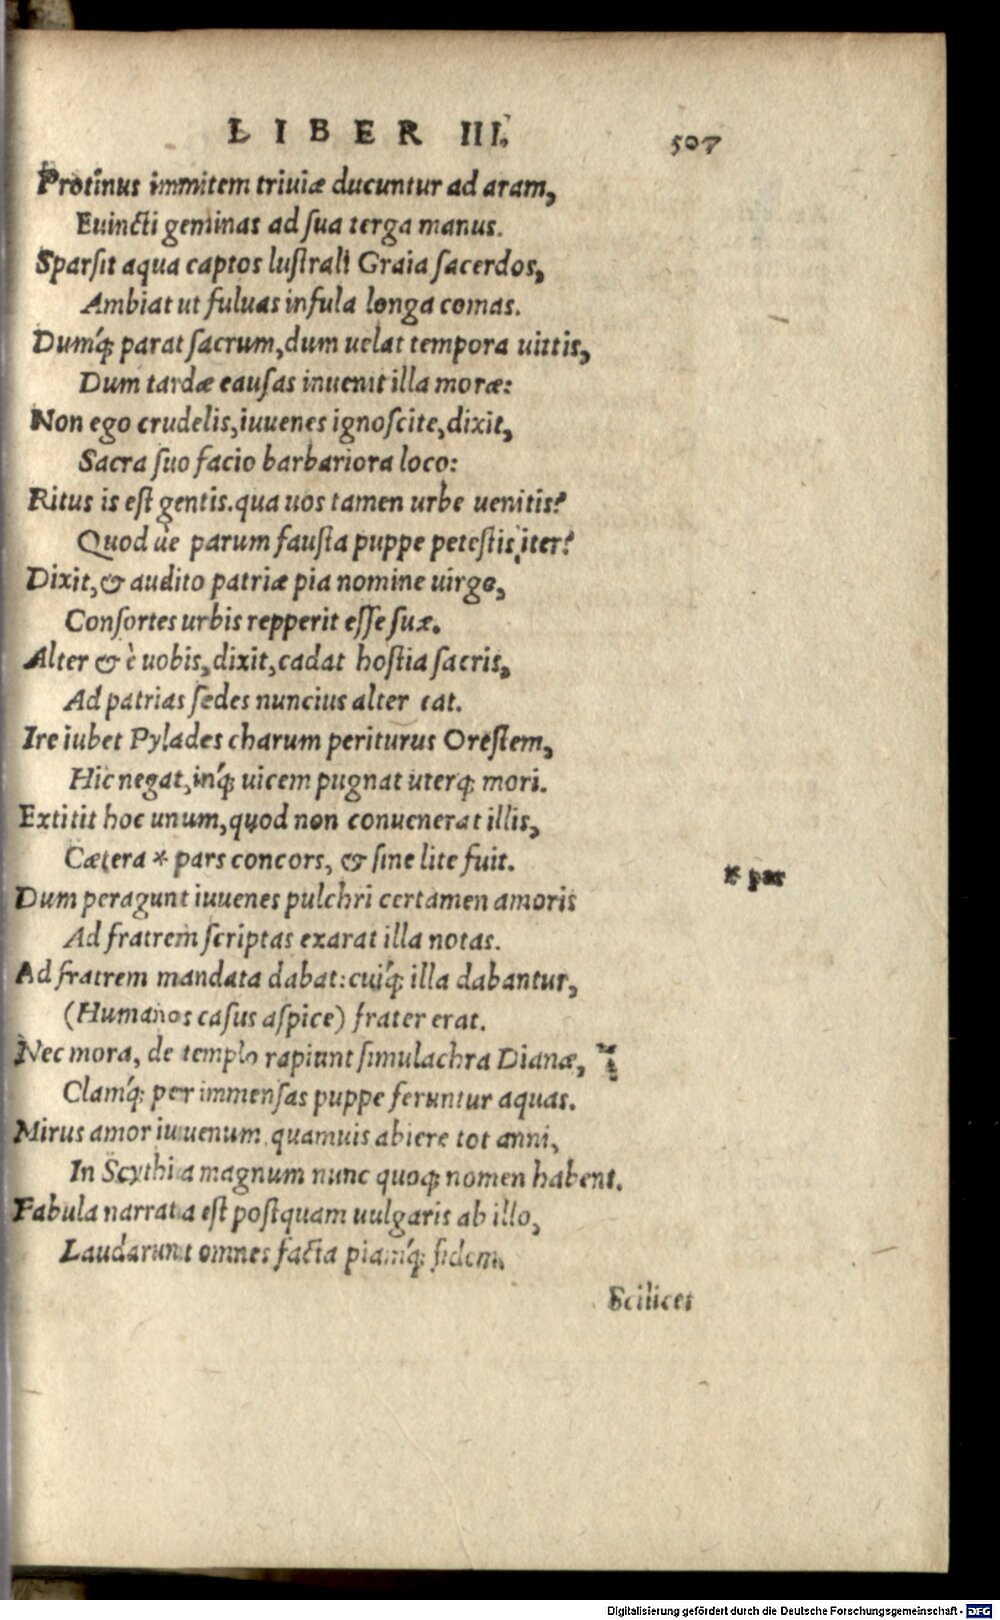 LIBER III. 507
Protinus immitem triuiæ ducuntur ad aram,
Euincti geminas ad ſua terga manus.
Sparſit aqua captos luſtrali Graia ſacerdos,
Ambiat ut fuluas infula longa comas.
Dumq́; parat ſacrum, dum uelat tempora uittis,
Dum tardæ cauſas inuenit illa moræ:
Non ego crudelis, iuuenes ignoſcite, dixit,
Sacra ſuo facio barbariora loco:
Ritus is eſt gentis. qua uos tamen urbe uenitis?
Quod ùe parum fauſta puppe peteſtis iter?
Dixit, & audito patriæ pia nomine uirgo,
Conſortes urbis repperit eſſe ſuæ.
Alter & è uobis, dixit, cadat hoſtia ſacris,
Ad patrias ſedes nuncius alter eat.
Ire iubet Pylades charum periturus Oreſtem,
Hic negat, inq́; uicem pugnat uterq; mori.
Extitit hoc unum, quod non conuenerat illis,
Cætera * pars concors, & ſine lite fuit.
* par
Dum peragunt iuuenes pulchri certamen amoris
Ad fratrem ſcriptas exarat illa notas.
Ad fratrem mandata dabat: cuiq́; illa dabantur,
(Humanos caſus aſpice) frater erat.
Nec mora, de templo rapiunt ſimulachra Dianæ,
Clamq́; per immenſas puppe feruntur aquas.
Mirus amor iuuenum, quamuis abiere tot anni,
In Scythia magnum nunc quoq; nomen habent.
Fabula narrata eſt poſtquam uulgaris ab illo,
Laudarunt omnes facta piamq́; fidem.
Scilicet
Digitalisierung gefördert durch die Deutsche Forschungsgemeinschaft - DFG